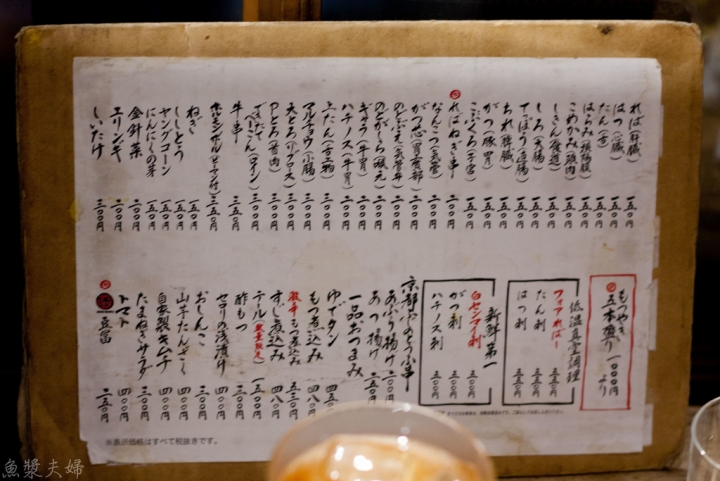 れば(肝臓) 一五〇円
はつ(心臓) 一五〇円
たん(舌) 一五〇円
はらみ(横隔膜) 一五〇円
こめかみ(頭肉) 一五〇円
しきん(食道) 一五〇円
しろ(大腸) 一五〇円
てっぽう(直腸) 一五〇円
ちれ(脾臓) 一五〇円
がつ(豚胃) 一五〇円
こぶくろ(子宮) 一五〇円
ればねぎ串 二〇〇円
なんこつ(気管) 二〇〇円
がつ芯 二〇〇円
のどぶえ 二〇〇円
のどがしら 二〇〇円
ギャラ(牛胃) 二〇〇円
ハチノス(牛胃) 二〇〇円
上たん 三〇〇円
マルチョウ(小腸) 三〇〇円
天とろ 三〇〇円
Pとろ(首肉) 三〇〇円
牛串 三五〇円
ねぎ 一五〇円
ししとう 一五〇円
ヤングコーン 一五〇円
にんにくの芽 一五〇円
金針菜 二〇〇円
エリンギ 二〇〇円
しいたけ 二〇〇円
もつやき
五本盛り 一〇〇〇円
より
低温真空調理
フォアればー 五五〇円
たん刺 五五〇円
はつ刺 五五〇円
新鮮第一
白センマイ刺 五五〇円
がつ刺 五五〇円
ハチノス刺 五五〇円
京都やのとうふ串
あぶり揚げ 二〇〇円
あつ揚げ 二五〇円
一品おつまみ
ゆでタン
もつ煮込み
激辛もつ煮込み
すじ煮込み 四八〇円
テール(数量限定) 一五〇〇円
酢もつ 四八〇円
セロリの浅漬け 四〇〇円
おしんこ 三〇〇円
山芋たんざく 四〇〇円
自家製キムチ 四〇〇円
たまねぎサラダ 三〇〇円
トマト 四〇〇円
豆富 二五〇円
※表示価格はすべて税抜きです。
魚漿夫婦